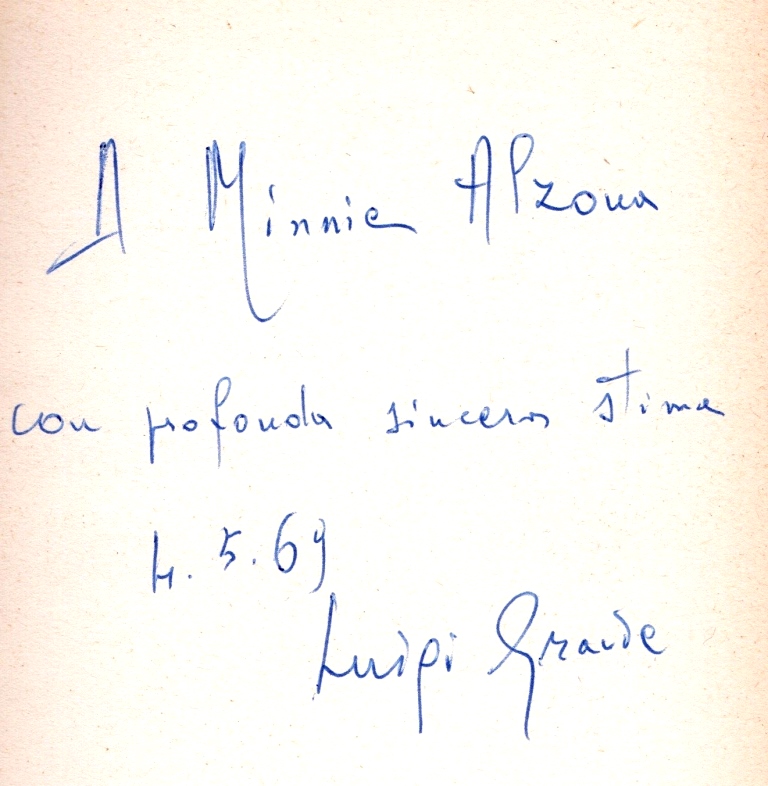 A Minnie Alzona
con profonda sincera stima
4.5.69
Luigi Grande